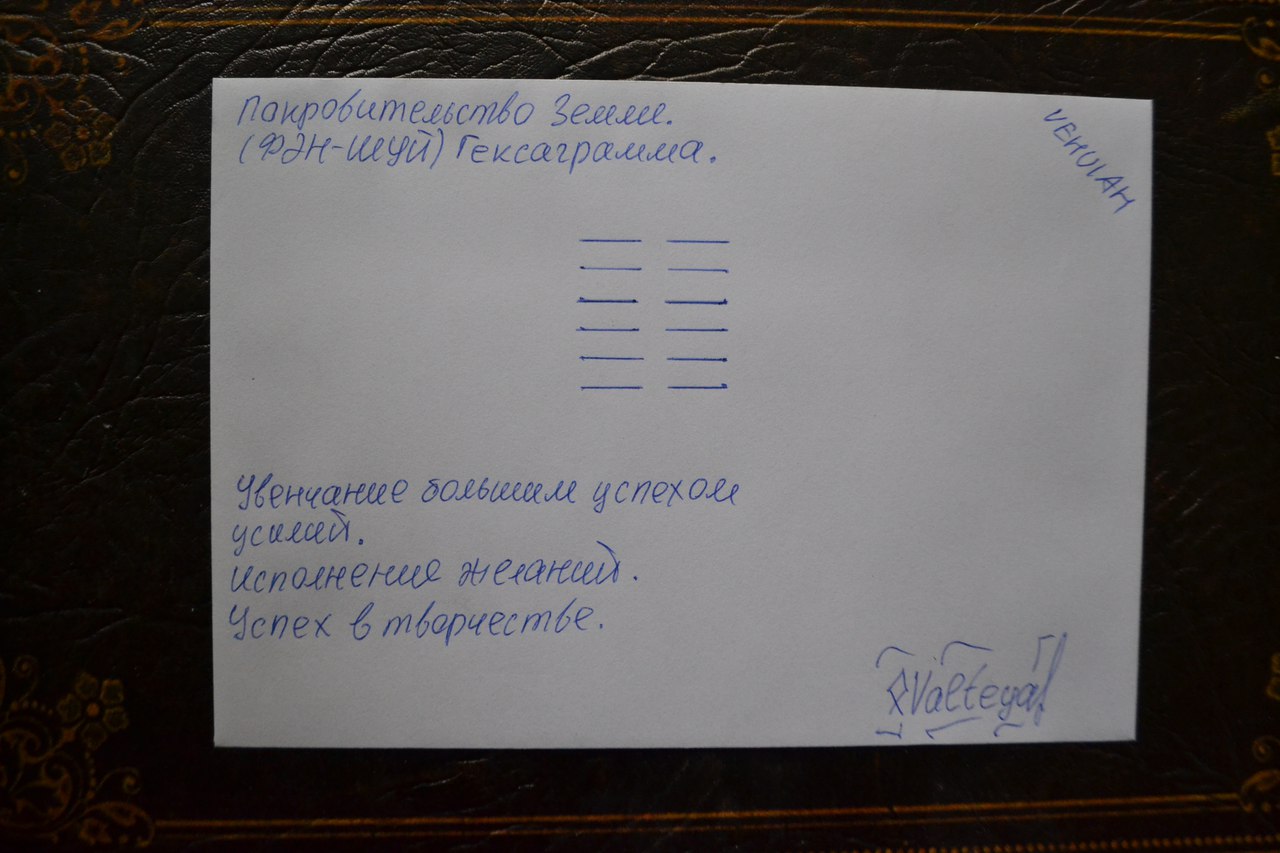 Покровительство Земли.
(ФЭН-ШУЙ) Гексаграмма.
VEHUIAH
Увенчание большим успехом
усилий.
исполнение желаний.
Успех в творчестве.
Valteya